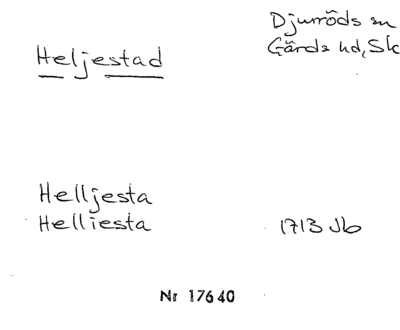 Heljestad
Djurröds sn
Gärds hd, Sk
Helljesta
Helliesta
1713 Jb
Nr 17640